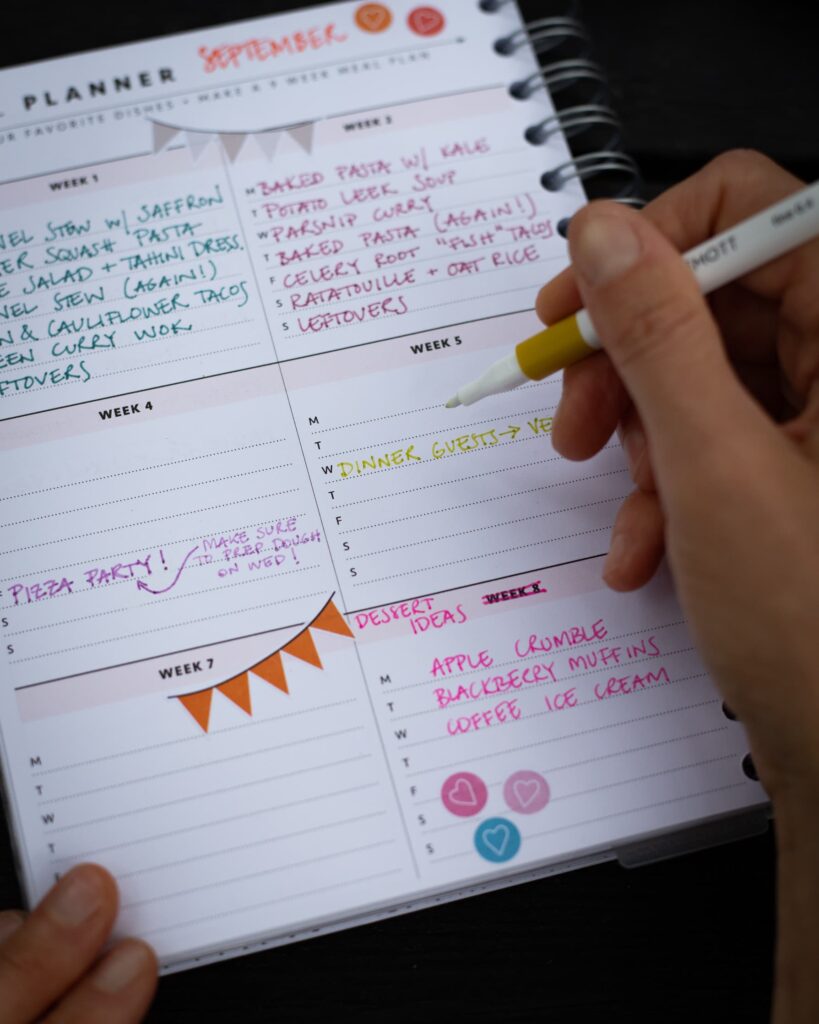 PLANNER SEPTEMBER
FAVORITE DISHES • MAKE A 9 WEEK MEAL PLAN
WEEK 1
STEW W/ SAFFRON
SQUASH PASTA
SALAD + TAHINI DRESS.
STEW (AGAIN!)
& CAULIFLOWER TACOS
CURRY WOK
WEEK 2
M BAKED PASTA W/ KALE
T POTATO LEEK SOUP
W PARSNIP CURRY
T BAKED PASTA (AGAIN!)
F CELERY ROOT "FISH" TACOS
S RATATOUILLE + OAT RICE
S LEFTOVERS
WEEK 4
F PIZZA PARTY!
MAKE SURE
TO PREP DOUGH
ON WED!
S
S
WEEK 5
M
T
W DINNER GUESTS → VE
T
F
S
S
WEEK 7
M
T
W
T
DESSERT
IDEAS
WEEK 8
M APPLE CRUMBLE
T BLACKBERRY MUFFINS
W COFFEE ICE CREAM
T
F
S
S